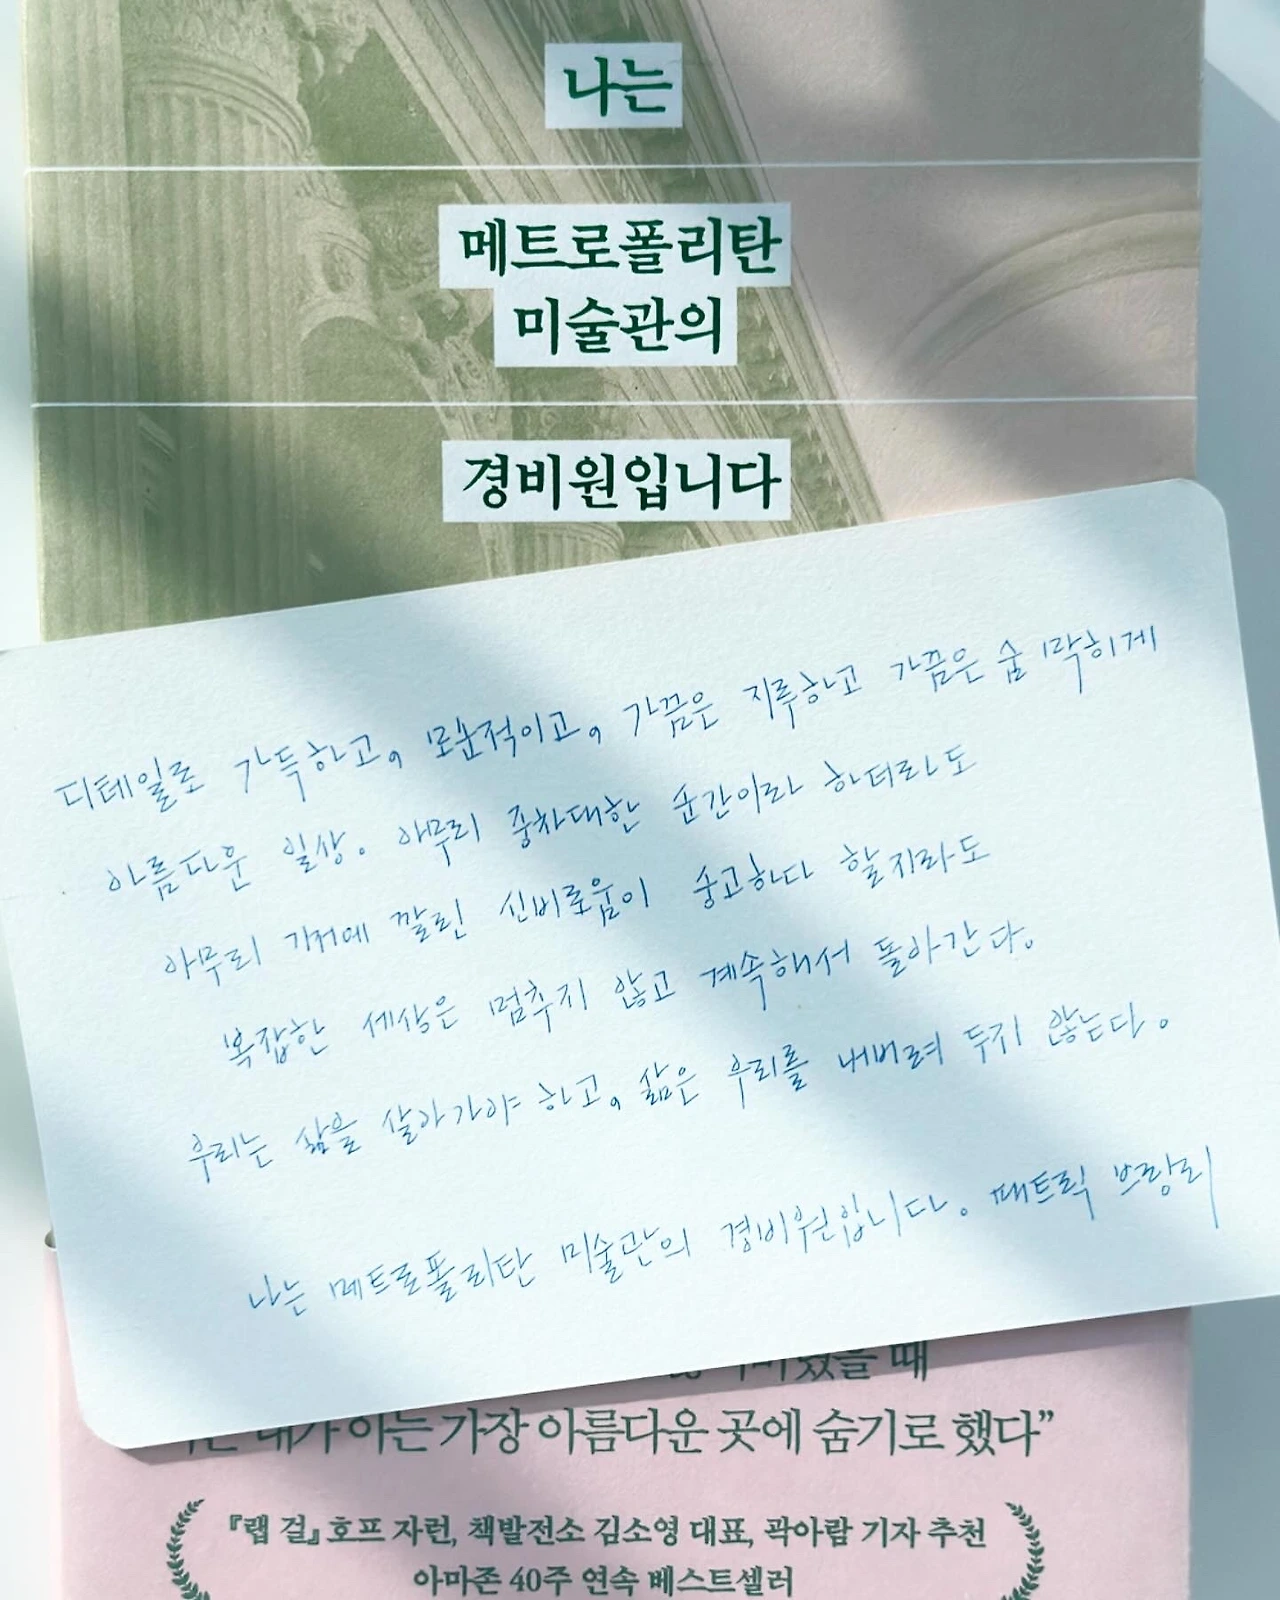 나는
메트로폴리탄
미술관의
경비원입니다
디테일로 가득하고, 모순적이고, 가끔은 지루하고 가끔은 숨 막히게
아름다운 일상. 아무리 중차대한 순간이라 하더라도
아무리 기저에 깔린 신비로움이 숭고하다 할지라도
복잡한 세상은 멈추지 않고 계속해서 돌아간다.
우리는 삶을 살아가야 하고, 삶은 우리를 내버려 두지 않는다.
나는 메트로폴리탄 미술관의 경비원입니다. 패트릭 브링리
때
내가 아는 가장 아름다운 곳에 숨기로 했다”
『랩 걸』 호프 자런, 책발전소 김소영 대표, 곽아람 기자 추천
아마존 40주 연속 베스트셀러